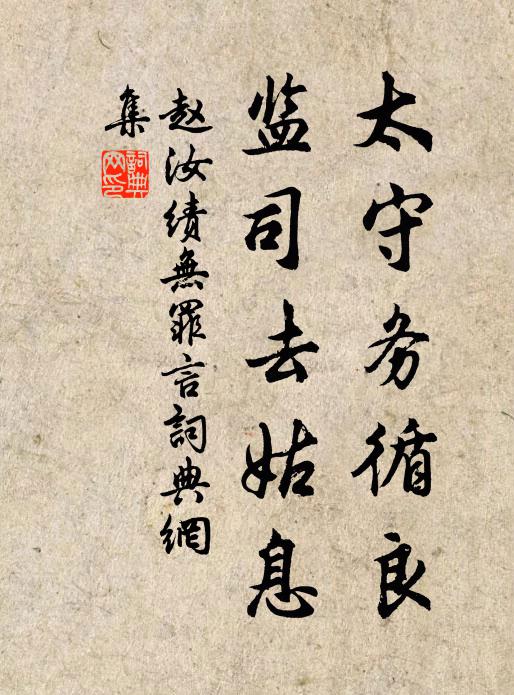 太守务循良
监司去姑息
赵汝绩無罪言詞典網
集
詞典
网印